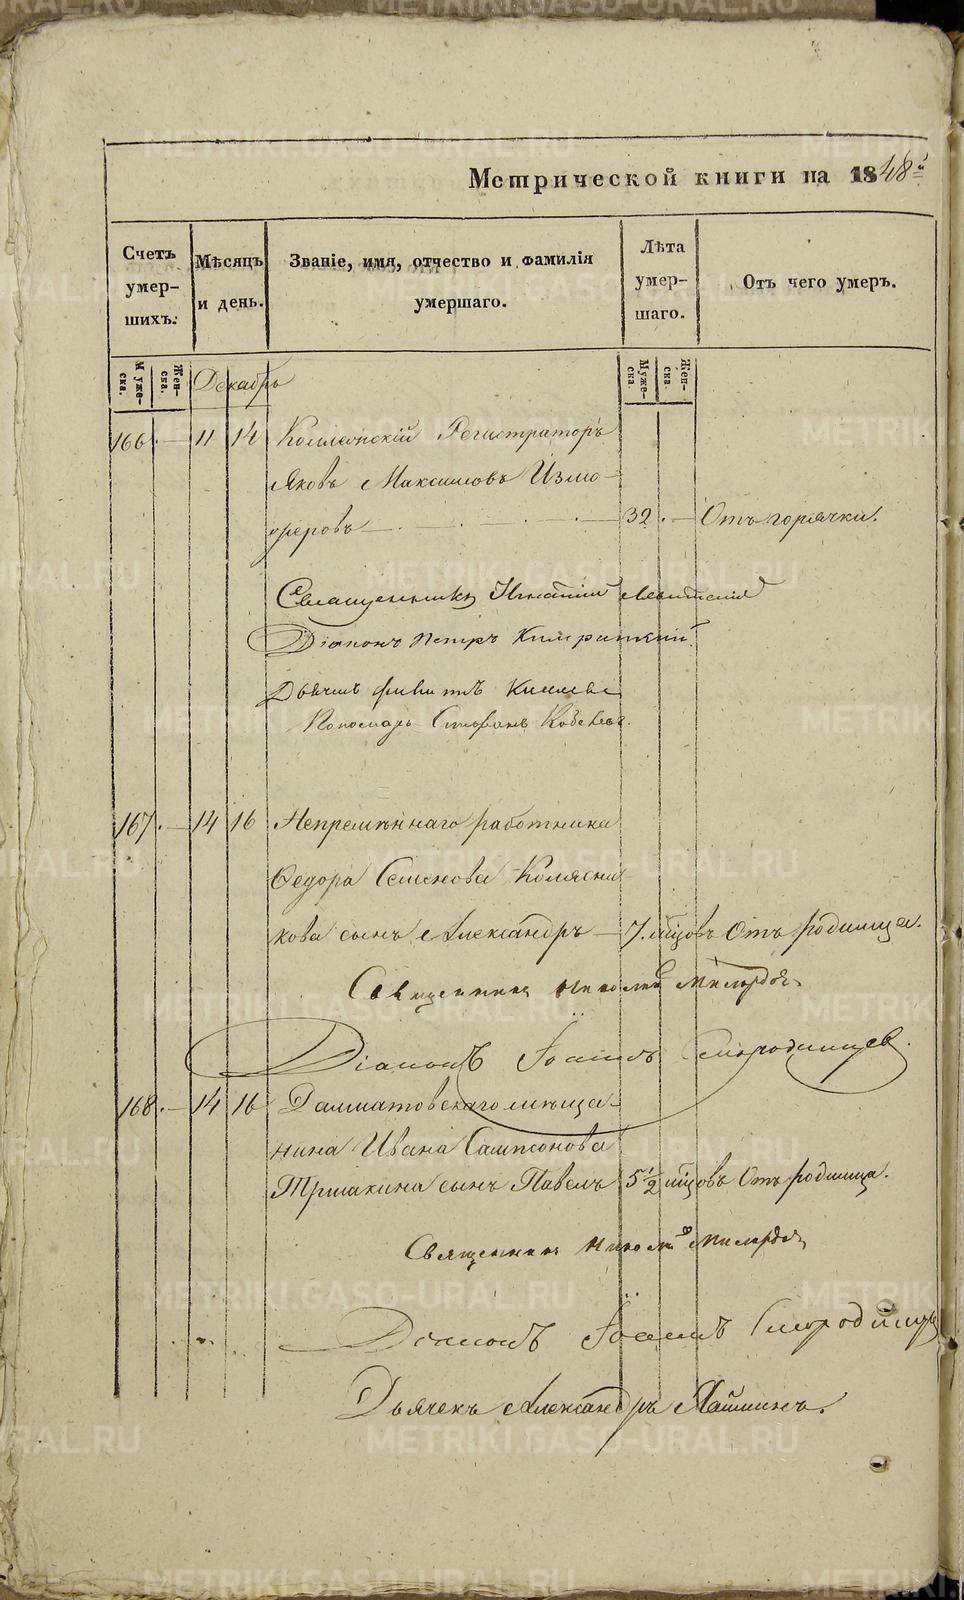 Метрической книги на 1848й
Счетъ умер-шихъ.
Мѣсяцъ и день.
Званіе, имя, отчество и фамилія умершаго.
Лѣта умер-шаго.
Отъ чего умеръ.
Муже-ска.
Жен-ска.
Декабрь
Муже-ска
Жен-ска.
166 11 14 Коллежскій Регистраторъ
Яковъ Максимовъ Измо-
деровъ 32 Отъ горячки.
Священникъ Игнатій Левитскій
Діаконъ Петръ
Дьячекъ
Пономарь Стефанъ
167 14 16 Непремѣннаго работника
Федора Семенова Колясни-
кова сынъ Александръ 7. мцовъ Отъ родимца.
Священникъ Николай
Діаконъ Іоаннъ Смородинцев.
168 14 16 Далматовскаго мѣща-
нина Ивана Сампсонова
Тршакина сынъ Павелъ 5 1/2 мцовъ Отъ родимца.
Священникъ Николай
Діаконъ Іоаннъ Смородинцъ
Дьячекъ Александръ Пашинъ.
METRIKI.GASO-URAL.RU